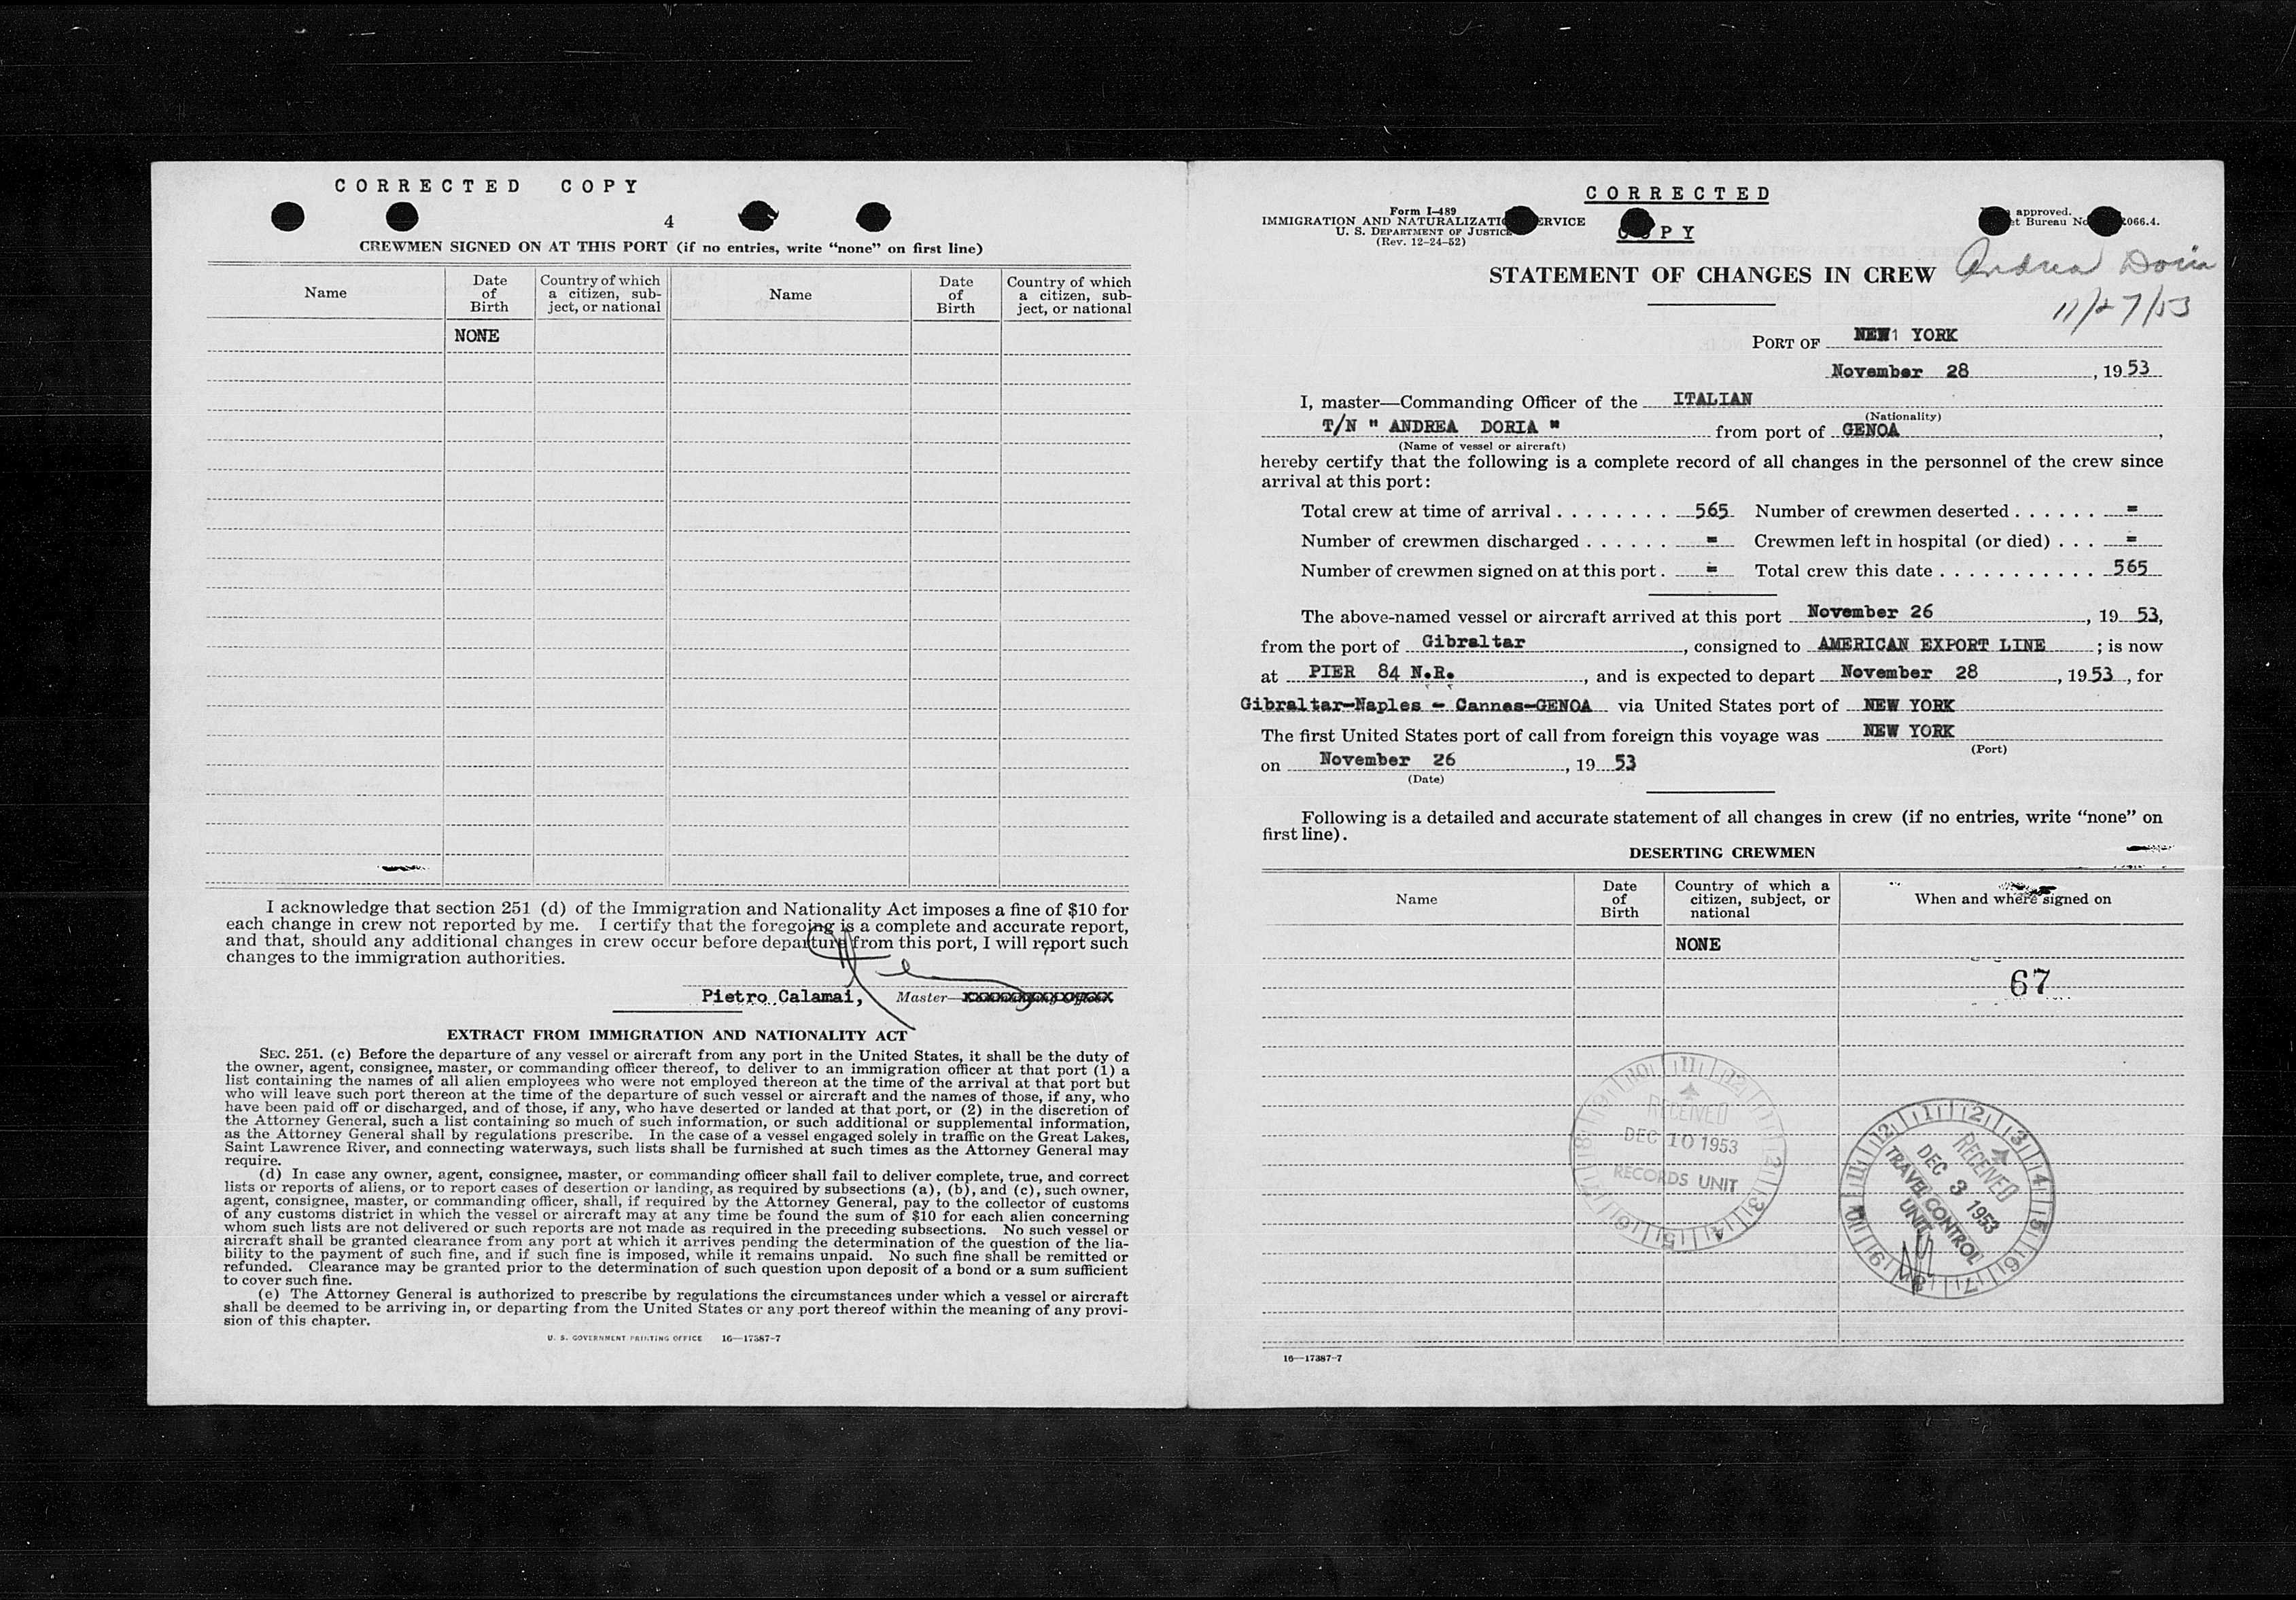 CORRECTED COPY
4
CREWMEN SIGNED ON AT THIS PORT (if no entries, write “none” on first line)
Name
Date of Birth
Country of which a citizen, subject, or national
Name
Date of Birth
Country of which a citizen, subject, or national
NONE
I acknowledge that section 251 (d) of the Immigration and Nationality Act imposes a fine of $10 for
each change in crew not reported by me. I certify that the foregoing is a complete and accurate report,
and that, should any additional changes in crew occur before departure from this port, I will report such
changes to the immigration authorities.
Pietro Calamai, Master—
EXTRACT FROM IMMIGRATION AND NATIONALITY ACT
SEC. 251. (c) Before the departure of any vessel or aircraft from any port in the United States, it shall be the duty of
the owner, agent, consignee, master, or commanding officer thereof, to deliver to an immigration officer at that port (1) a
list containing the names of all alien employees who were not employed thereon at the time of the arrival at that port but
who will leave such port thereon at the time of the departure of such vessel or aircraft and the names of those, if any, who
have been paid off or discharged, and of those, if any, who have deserted or landed at that port, or (2) in the discretion of
the Attorney General, such a list containing so much of such information, or such additional or supplemental information,
as the Attorney General shall by regulations prescribe. In the case of a vessel engaged solely in traffic on the Great Lakes,
Saint Lawrence River, and connecting waterways, such lists shall be furnished at such times as the Attorney General may
require.
(d) In case any owner, agent, consignee, master, or commanding officer shall fail to deliver complete, true, and correct
lists or reports of aliens, or to report cases of desertion or landing, as required by subsections (a), (b), and (c), such owner,
agent, consignee, master, or commanding officer, shall, if required by the Attorney General, pay to the collector of customs
of any customs district in which the vessel or aircraft may at any time be found the sum of $10 for each alien concerning
whom such lists are not delivered or such reports are not made as required in the preceding subsections. No such vessel or
aircraft shall be granted clearance from any port at which it arrives pending the determination of the question of the lia-
bility to the payment of such fine, and if such fine is imposed, while it remains unpaid. No such fine shall be remitted or
refunded. Clearance may be granted prior to the determination of such question upon deposit of a bond or a sum sufficient
to cover such fine.
(e) The Attorney General is authorized to prescribe by regulations the circumstances under which a vessel or aircraft
shall be deemed to be arriving in, or departing from the United States or any port thereof within the meaning of any provi-
sion of this chapter.
U. S. GOVERNMENT PRINTING OFFICE 16—17387-7
CORRECTED
COPY
Form I-489
IMMIGRATION AND NATURALIZATION SERVICE
U. S. DEPARTMENT OF JUSTICE
(Rev. 12-24-52)
approved.
Bureau No. 066.4.
STATEMENT OF CHANGES IN CREW
Andrea Doria
11/27/53
PORT OF NEW YORK
November 28, 1953
I, master—Commanding Officer of the ITALIAN
(Nationality)
T/N " ANDREA DORIA " from port of GENOA,
(Name of vessel or aircraft)
hereby certify that the following is a complete record of all changes in the personnel of the crew since
arrival at this port:
Total crew at time of arrival . . . . . . . . 565 Number of crewmen deserted . . . . . . =
Number of crewmen discharged . . . . . . = Crewmen left in hospital (or died) . . . =
Number of crewmen signed on at this port . = Total crew this date . . . . . . . . . . . . 565
The above-named vessel or aircraft arrived at this port November 26, 1953,
from the port of Gibraltar, consigned to AMERICAN EXPORT LINE; is now
at PIER 84 N.R., and is expected to depart November 28, 1953, for
Gibraltar-Naples - Cannes-GENOA via United States port of NEW YORK
The first United States port of call from foreign this voyage was NEW YORK
(Port)
on November 26, 1953
(Date)
Following is a detailed and accurate statement of all changes in crew (if no entries, write “none” on
first line).
DESERTING CREWMEN
Name
Date of Birth
Country of which a citizen, subject, or national
When and where signed on
NONE
67
RECEIVED
DEC 10 1953
RECORDS UNIT
RECEIVED
DEC 3 1953
TRAVEL CONTROL
UNIT
16—17387-7